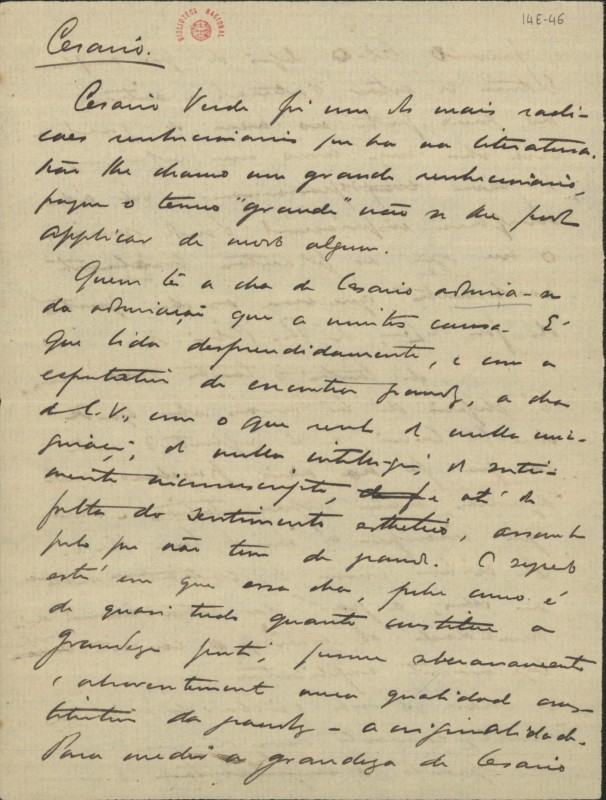 14E-46
BIBLIOTECA NACIONAL
Cesario.
Cesario Verde foi um dos mais radi-
caes revolucionarios que ha na literatura.
Não lhe chamo um grande revolucionario,
porque o termo "grande" não se lhe pode
applicar de modo algum.
Quem lê a obra de Cesario admira-se
da admiração que a muitos causa. É
que lida desprendidamente, e com a
expectativa de encontrar grandeza, a obra
de C. V., com o que revela de nulla ima-
ginação, de nulla intelligencia, de senti-
mento circumscripto, e até de
falta do sentimento esthetico, assombra
pelo que não tem de grande. O segredo
está em que essa obra, pobre como é
de quasi tudo quanto constitue a
grandeza, possue soberanamente
e absorventemente uma qualidade cons-
titutiva da grandeza - a originalidade.
Para medir a grandeza de Cesario